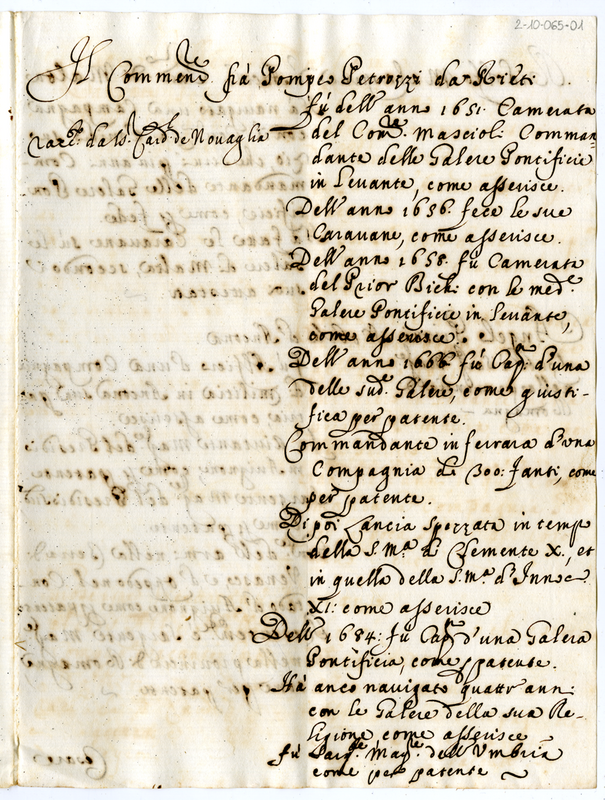 2-10-065-01
Il Commend.re frà Pompeo Petrozzi da Rieti
fù dell'anno 1651. Camerata
racc.to da S.r Card. de Novaglia
del Com.re Mascioli Comman=
dante delle Galere Pontificie
in Levante, come asserisce.
Dell'anno 1656. fece le sue
Caravane, come asserisce.
Dell'anno 1658. fù Camerata
del Prior Bichi con le med.e
Galere Pontificie in Levante,
come asserisce.
Dell'anno 1666 fù Cap.o d'una
delle sud.e Galere, come giusti-
fica per patente.
Commandante in ferrara d'una
Compagnia di 300: fanti, come
per patente.
Dipoi Lancia spezzata in temp
della S.M.a di Clemente X., et
in quella della S.M.a d'Innoc
XI: come asserisce
Dell' 1684: fù Cap.o d'una Galera
Pontificia, come p patente.
Hà anco navigato quattr'anni
con le Galere della sua Re-
ligione, come asserisce
fù Sarg.te Mag.re dell'Umbria
come per patente